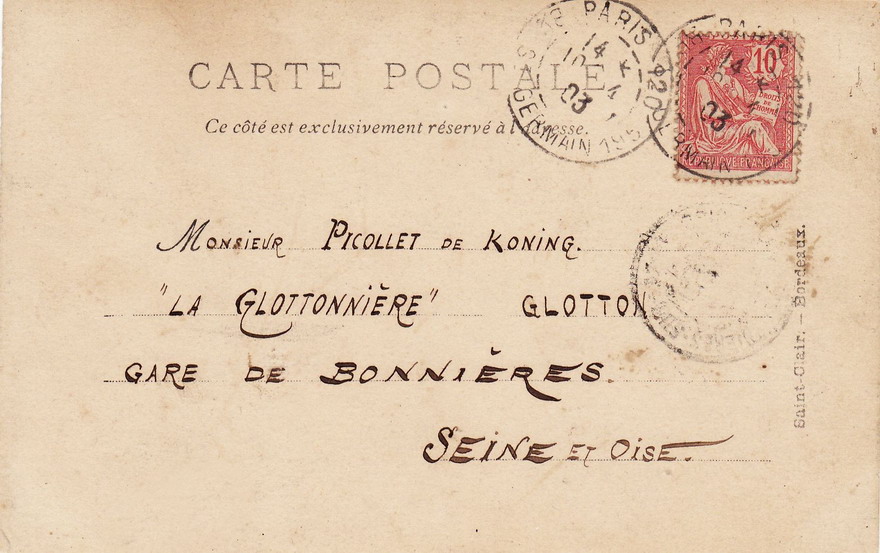 CARTE POSTALE
Ce côté est exclusivement réservé à l'adresse.
PARIS
14
10
4
03
GERMAIN 195
PARIS
14
03
10
DROITS
DE
L'HOMME
RÉPUBLIQUE FRANÇAISE
Monsieur Picollet de Koning.
"LA GLOTTONNIÈRE" GLOTTON
GARE DE BONNIÈRES.
SEINE ET OISE.
Saint-Clair. — Bordeaux.